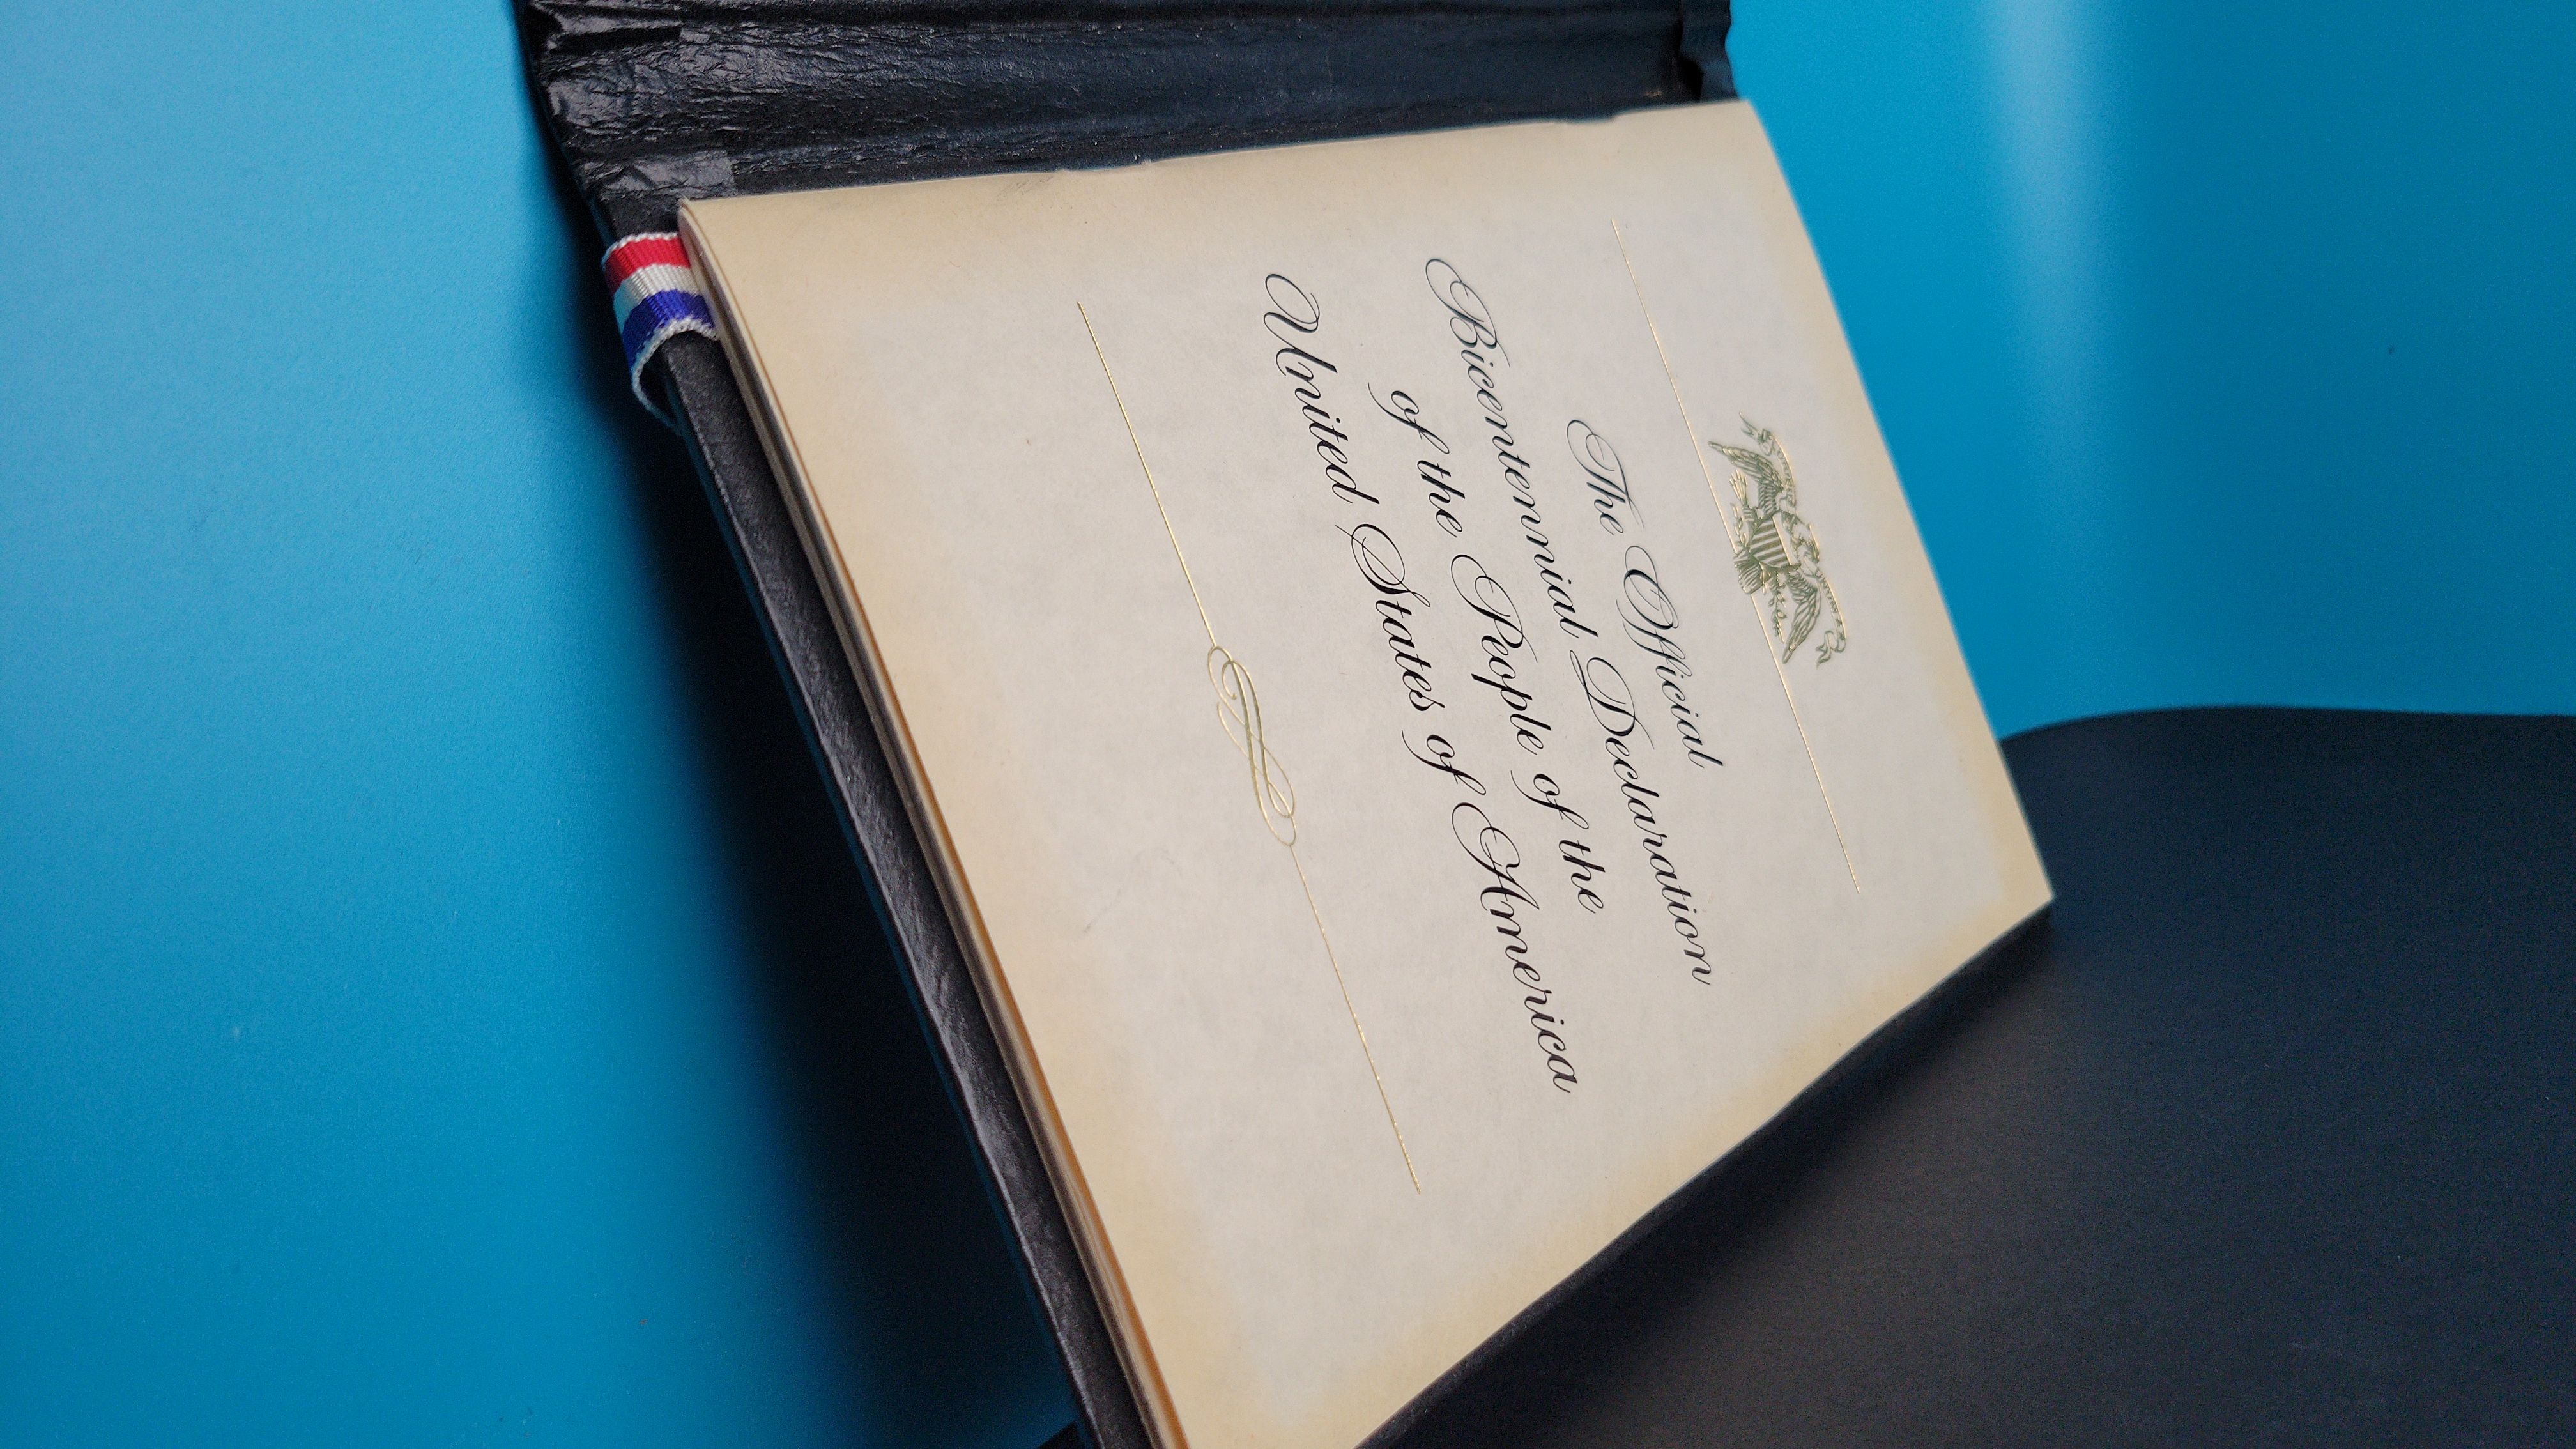 The Official
Bicentennial Declaration
of the People of the
United States of America